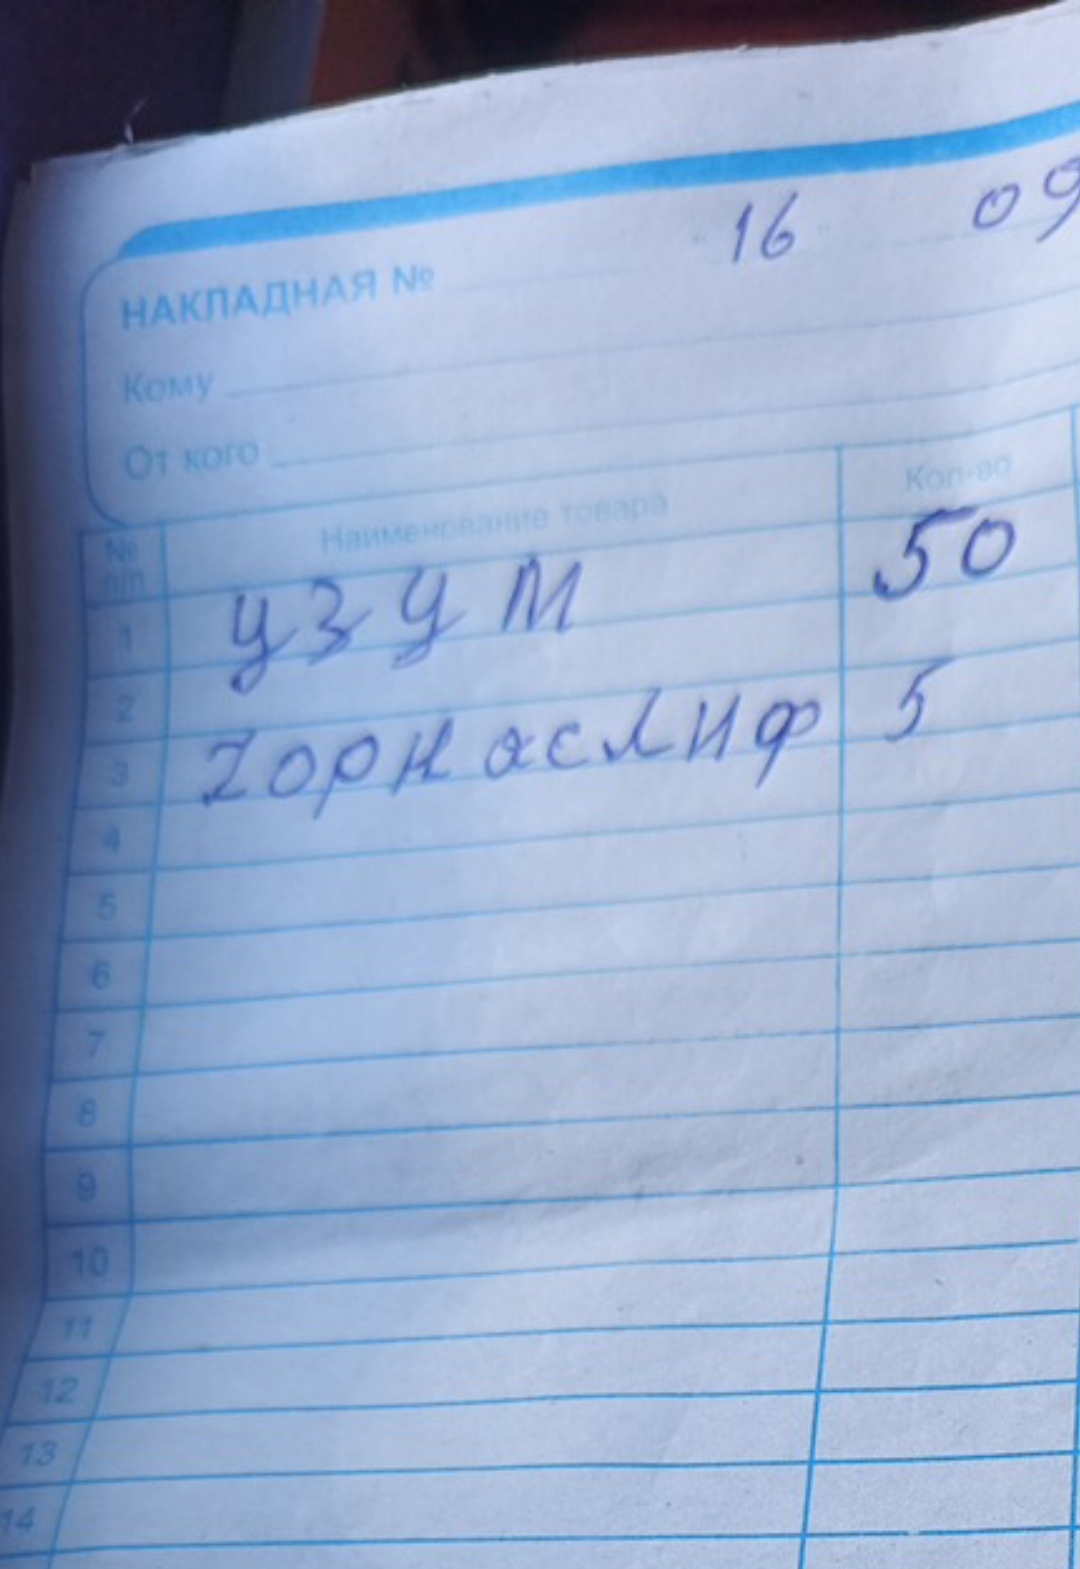 16 09
НАКЛАДНАЯ №
Кому
От кого
№ п/п Наименование товара Кол-во
1 УЗУМ 50
2
3 ЧОРНАСЛИФ 5
4
5
6
7
8
9
10
11
12
13
14